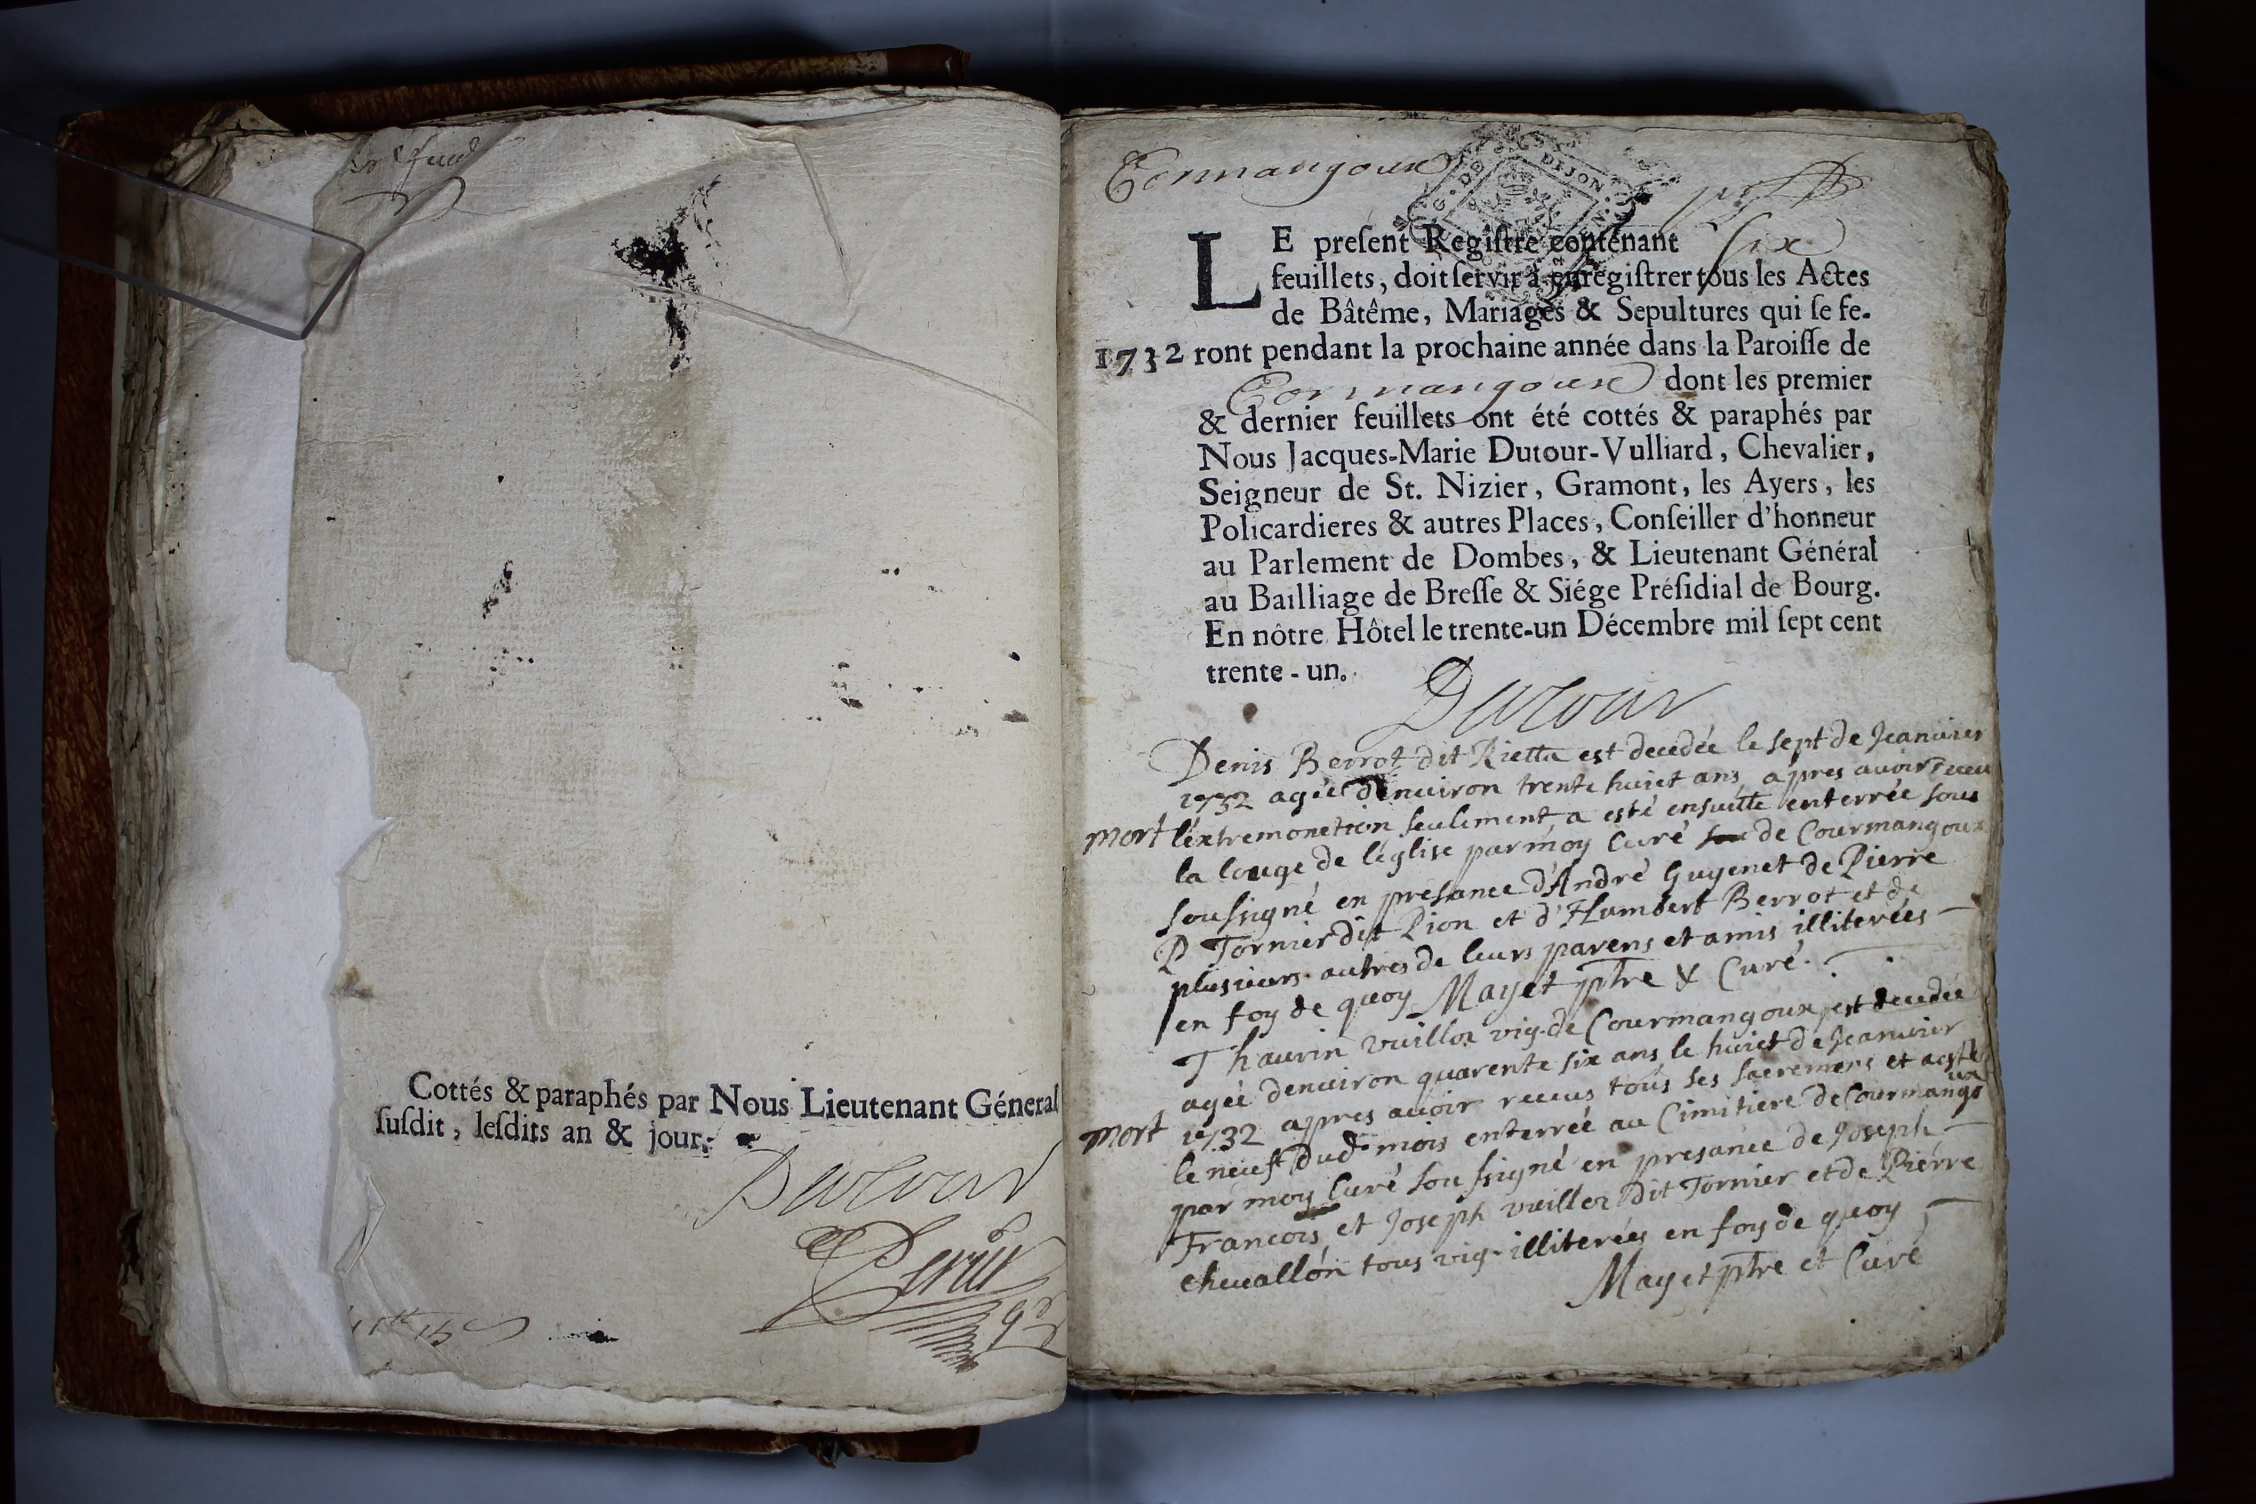 Cottés & paraphés par Nous Lieutenant Géneral
ſuſdit, leſdits an & jour.
Dutour
Cormangoux
DE DIJON
LE preſent Regiſtre contenant six
feuillets, doit ſervir à enregiſtrer tous les Actes
de Bâtême, Mariages & Sepultures qui ſe fe-
1732 ront pendant la prochaine année dans la Paroiſſe de
Cormangoux dont les premier
& dernier feuillets ont été cottés & paraphés par
Nous Jacques-Marie Dutour-Vulliard, Chevalier,
Seigneur de St. Nizier, Gramont, les Ayers, les
Policardieres & autres Places, Conſeiller d'honneur
au Parlement de Dombes, & Lieutenant Général
au Bailliage de Breſſe & Siége Préſidial de Bourg.
En nôtre Hôtel le trente-un Décembre mil ſept cent
trente-un.
Dutour
Denis Berrot dit Riettu est decedée le sept de Jeanvier
1732 agée d'enuiron trente huict ans, apres auoir receu
mort l'extremonetion seulement a esté ensuitte enterrée sous
la louge de l'église par moy Curé de Courmangoux
soussigné en presance d'André Guyenet de Pierre
P Tornier dit Pion et d'Humbert Berrot et de
plusieurs autres de leurs parens et amis illiterées
en foy de quoy Mayet ptre & Curé.
Thaurin vuilloz vig. de Courmangoux, est decedée
agée denuiron quarente six ans le huict de Jeanvier
mort 1732 apres auoir receus tous ses sacremens et aesté
le neuf dud. mois enterrée au Cimitiere de Courmangoux
par moy Curé soussigné en presance de Joseph
Francois, et Joseph vuilloz dit Tornier et de Pierre
cheuallon tous vig. illiterées en foy de quoy
Mayet ptre et Curé